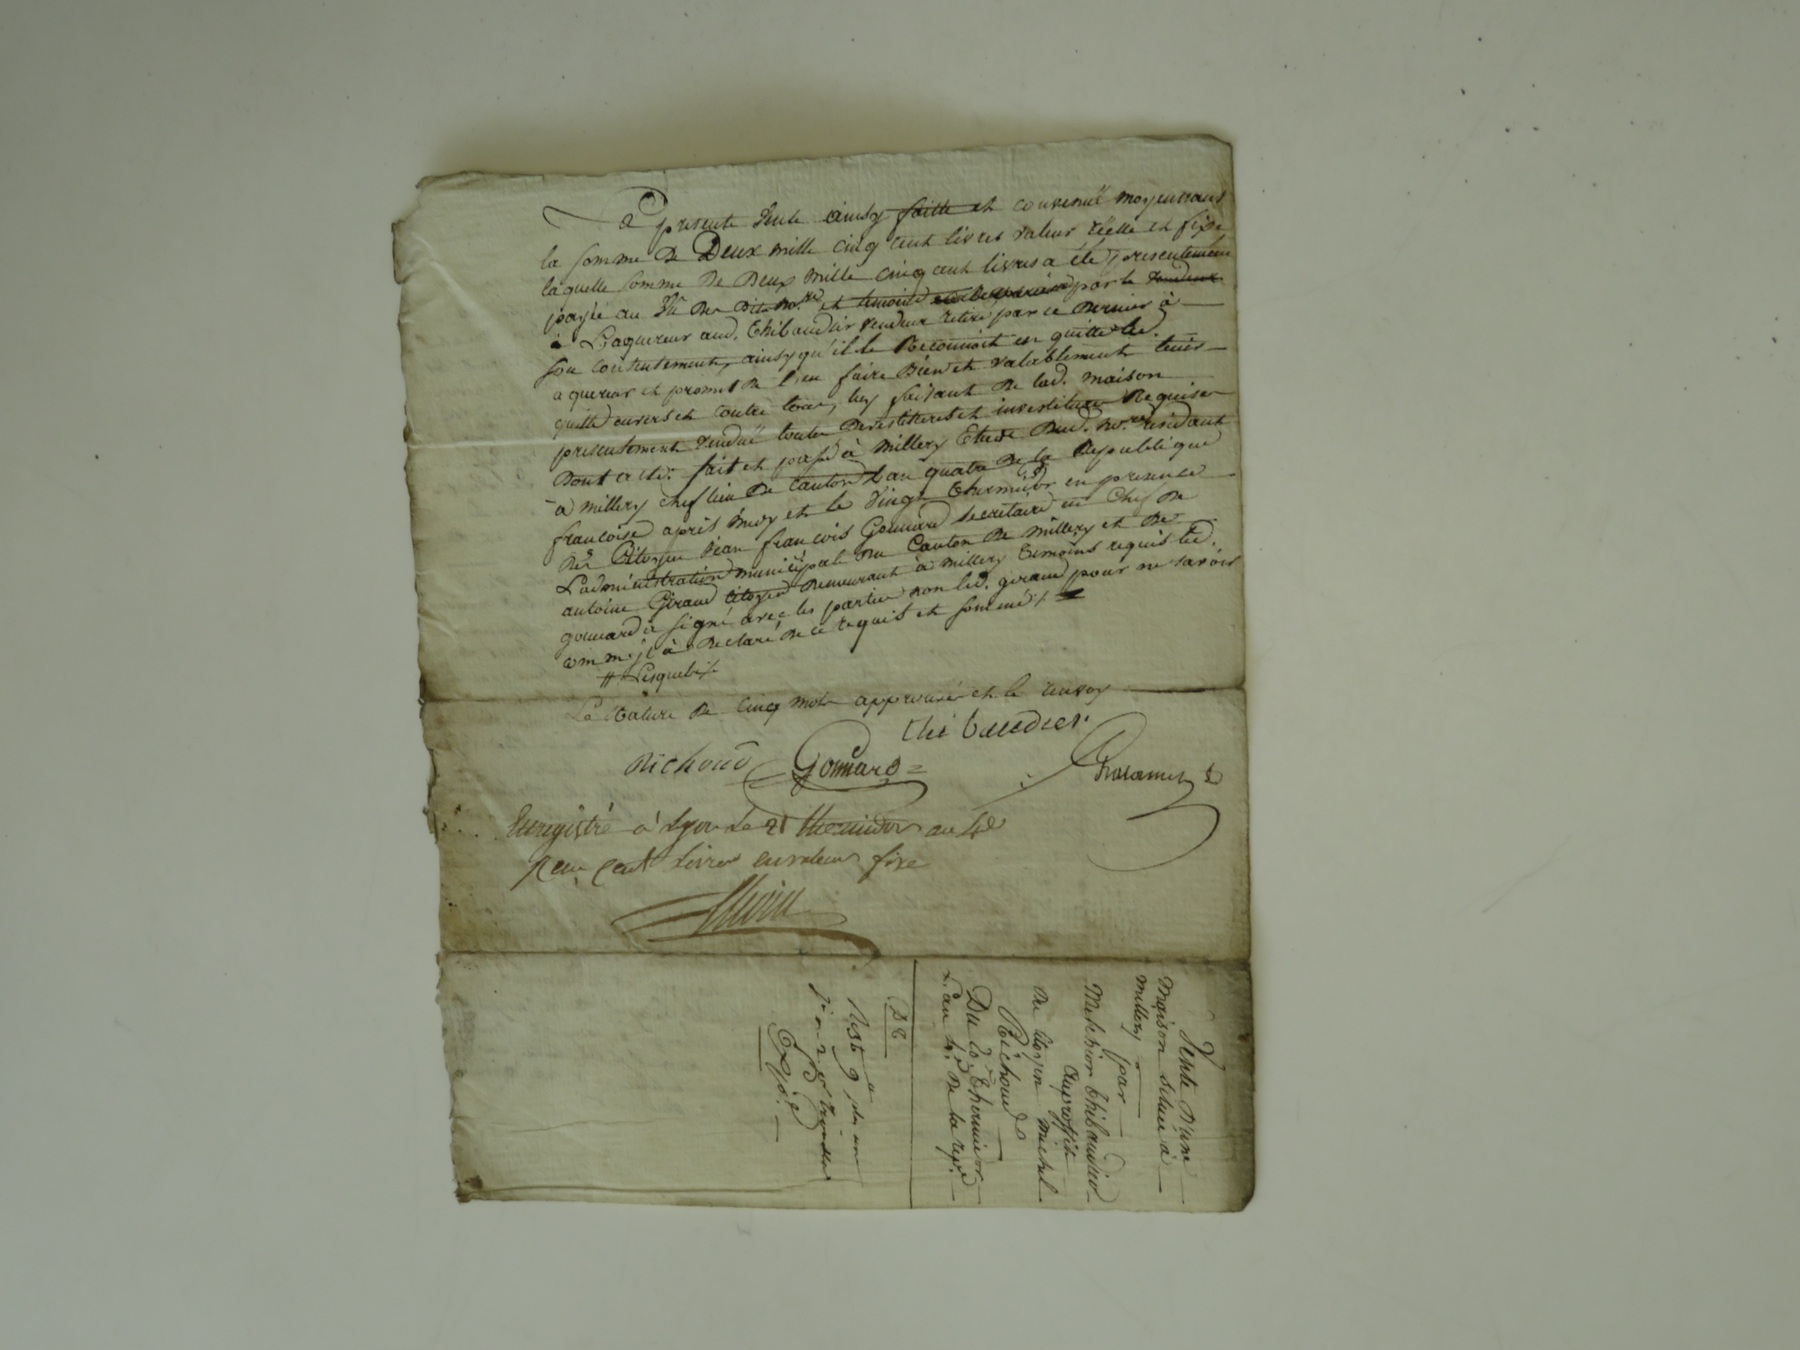 La presente Vente ainsy faitte et convenuë moyennant
la somme de Deux mille cinq cent livres valeur réelle et fixe
laquelle somme de Deux mille cinq cent livres a été presentement
payée au Vu des dits No.re et temoins par le
à L'aquereur aud. Thibaudier vendeur retiré par ce dernier à
son contentement, ainsy qu'il le Reconnoit en quitte led.
aquereur et promet de l'en faire Bien et valablement tenir
quitte envers et contre tous, luy faisant de lad. maison
presentement venduë toutes Devestitures et investitures Requises
Dont acte: fait et passé à millery Etude dud. no.re résidant
à millery chef lieu de canton L'an quatre de la Republique
francoise après midy et le vingt thermidor en presence
des Citoyen Jean francois Gouuard secretaire en Chef de
L'administration municipal du Canton de millery et de
antoine Giraud citoyen demeurant à millery temoins requis led.
gouuard à signé avec les parties non led. giraud pour ne savoir
comme il à declaré de ce requis et sommé /.
# Lesquels /.
La Rature de cinq mots approuvée et le renvoy
thibaudier.
Richoud Gouuard
Enregistré à Lyon Le 21 thermidor an 4e
Reçu cent Livres en valeur fixe
Vente d'une
maison située à
millery
par
Melchior thibaudier
au proffit
du citoyen michel
Richoud
Du 20 thermidor
L'an 4e de la rép.e